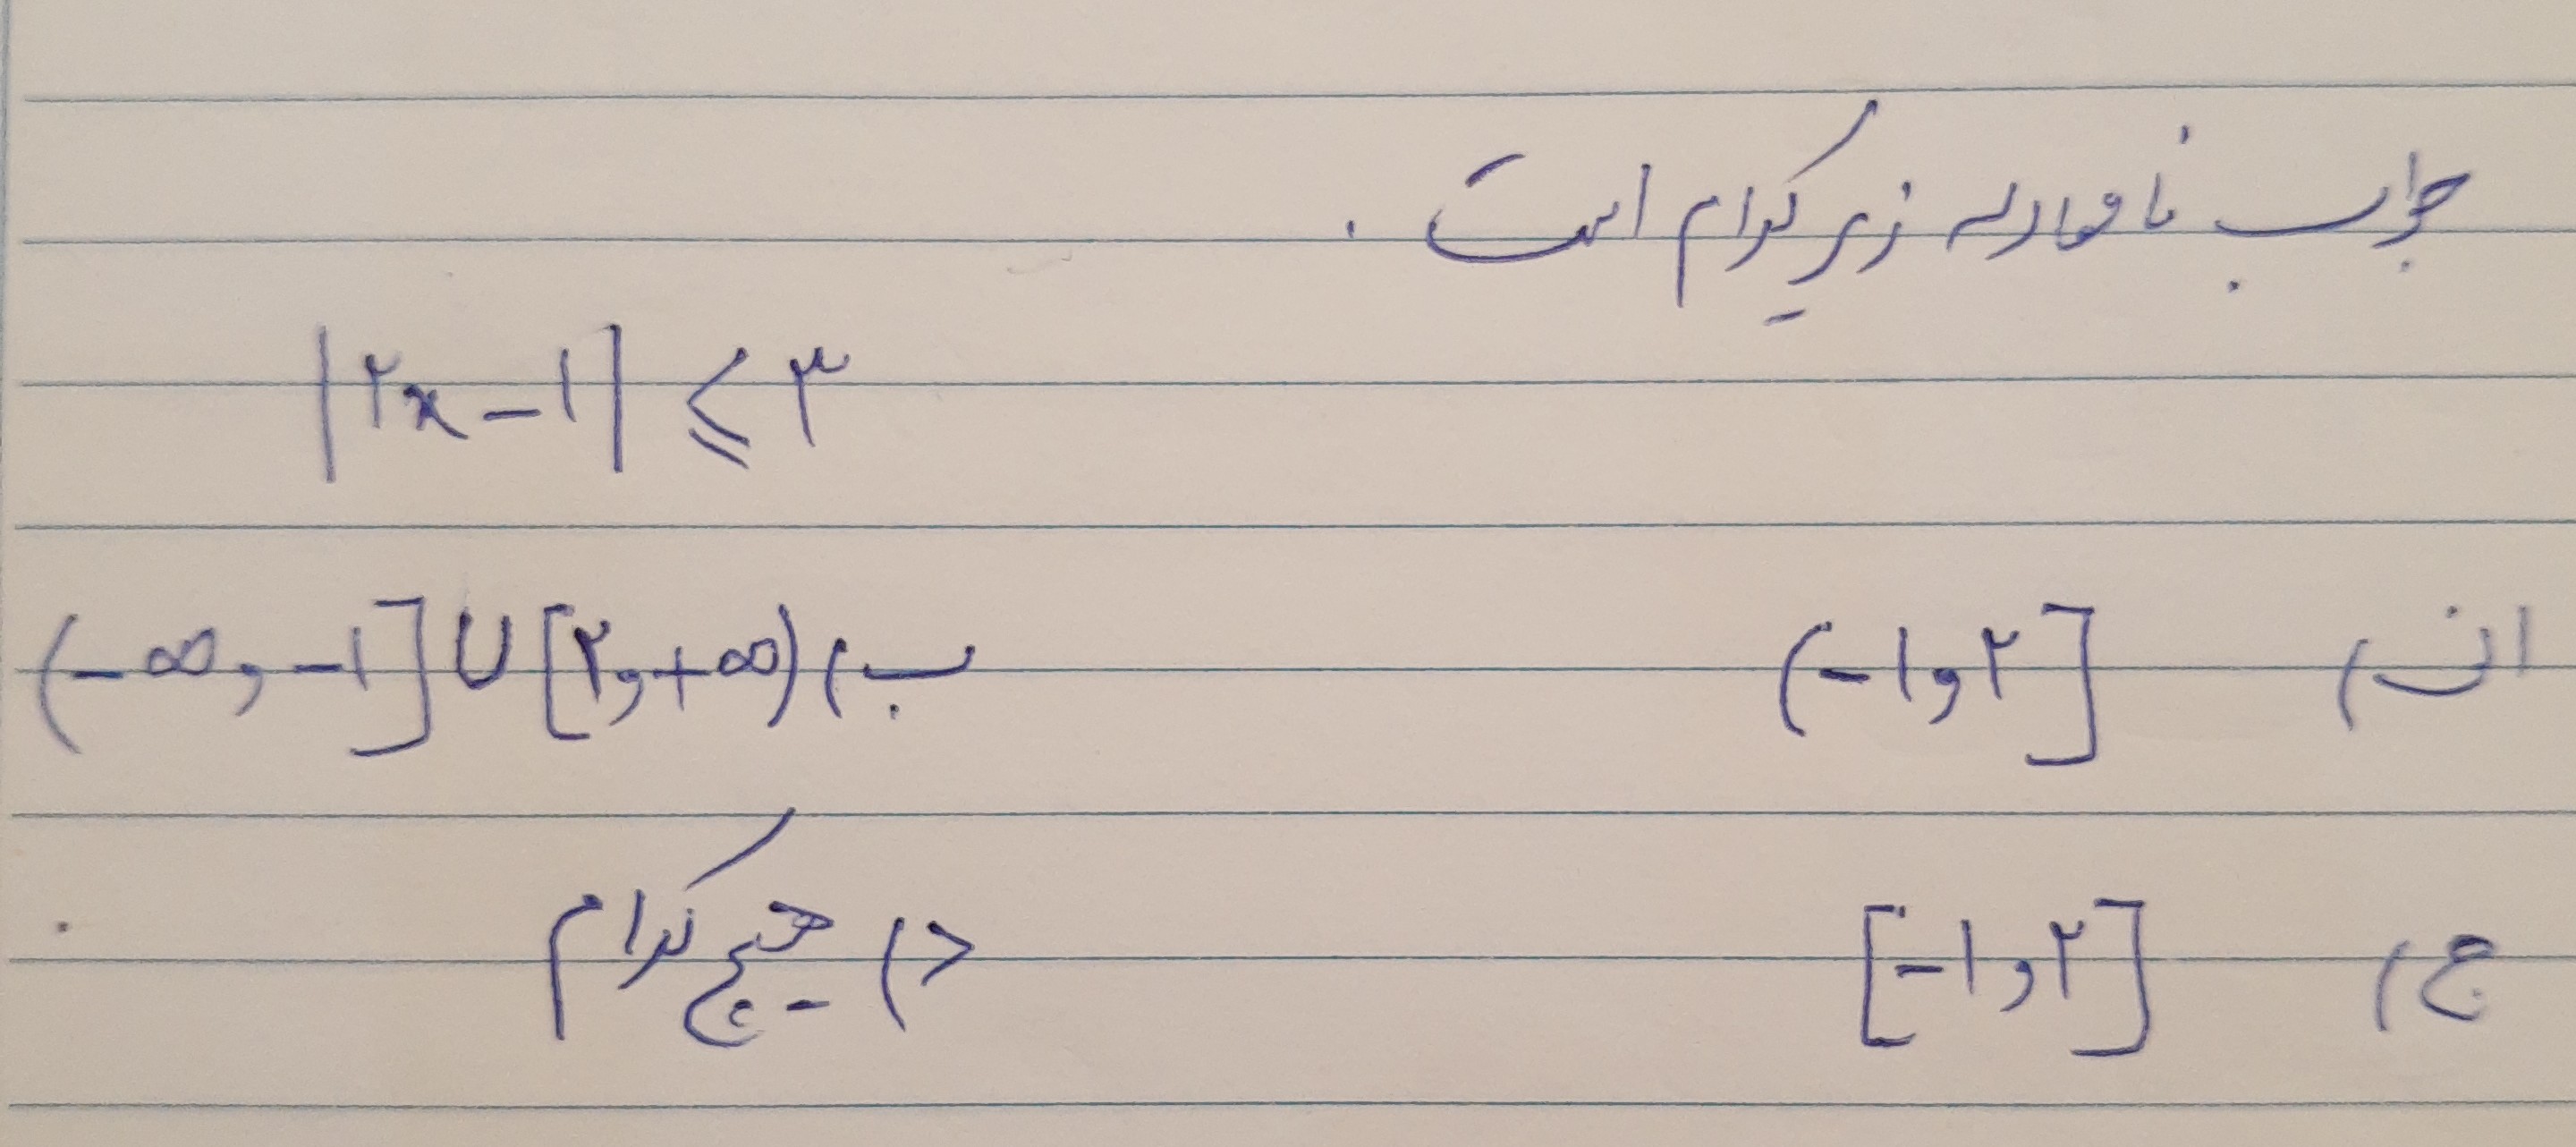 جواب نامعادله زیر کدام است .
|۲x-۱| ⩽ ۳
الف) (-۱,۲] ب) (-∞,-۱]∪[۲,+∞)
ج) [-۱,۲] د) هیچ کدام